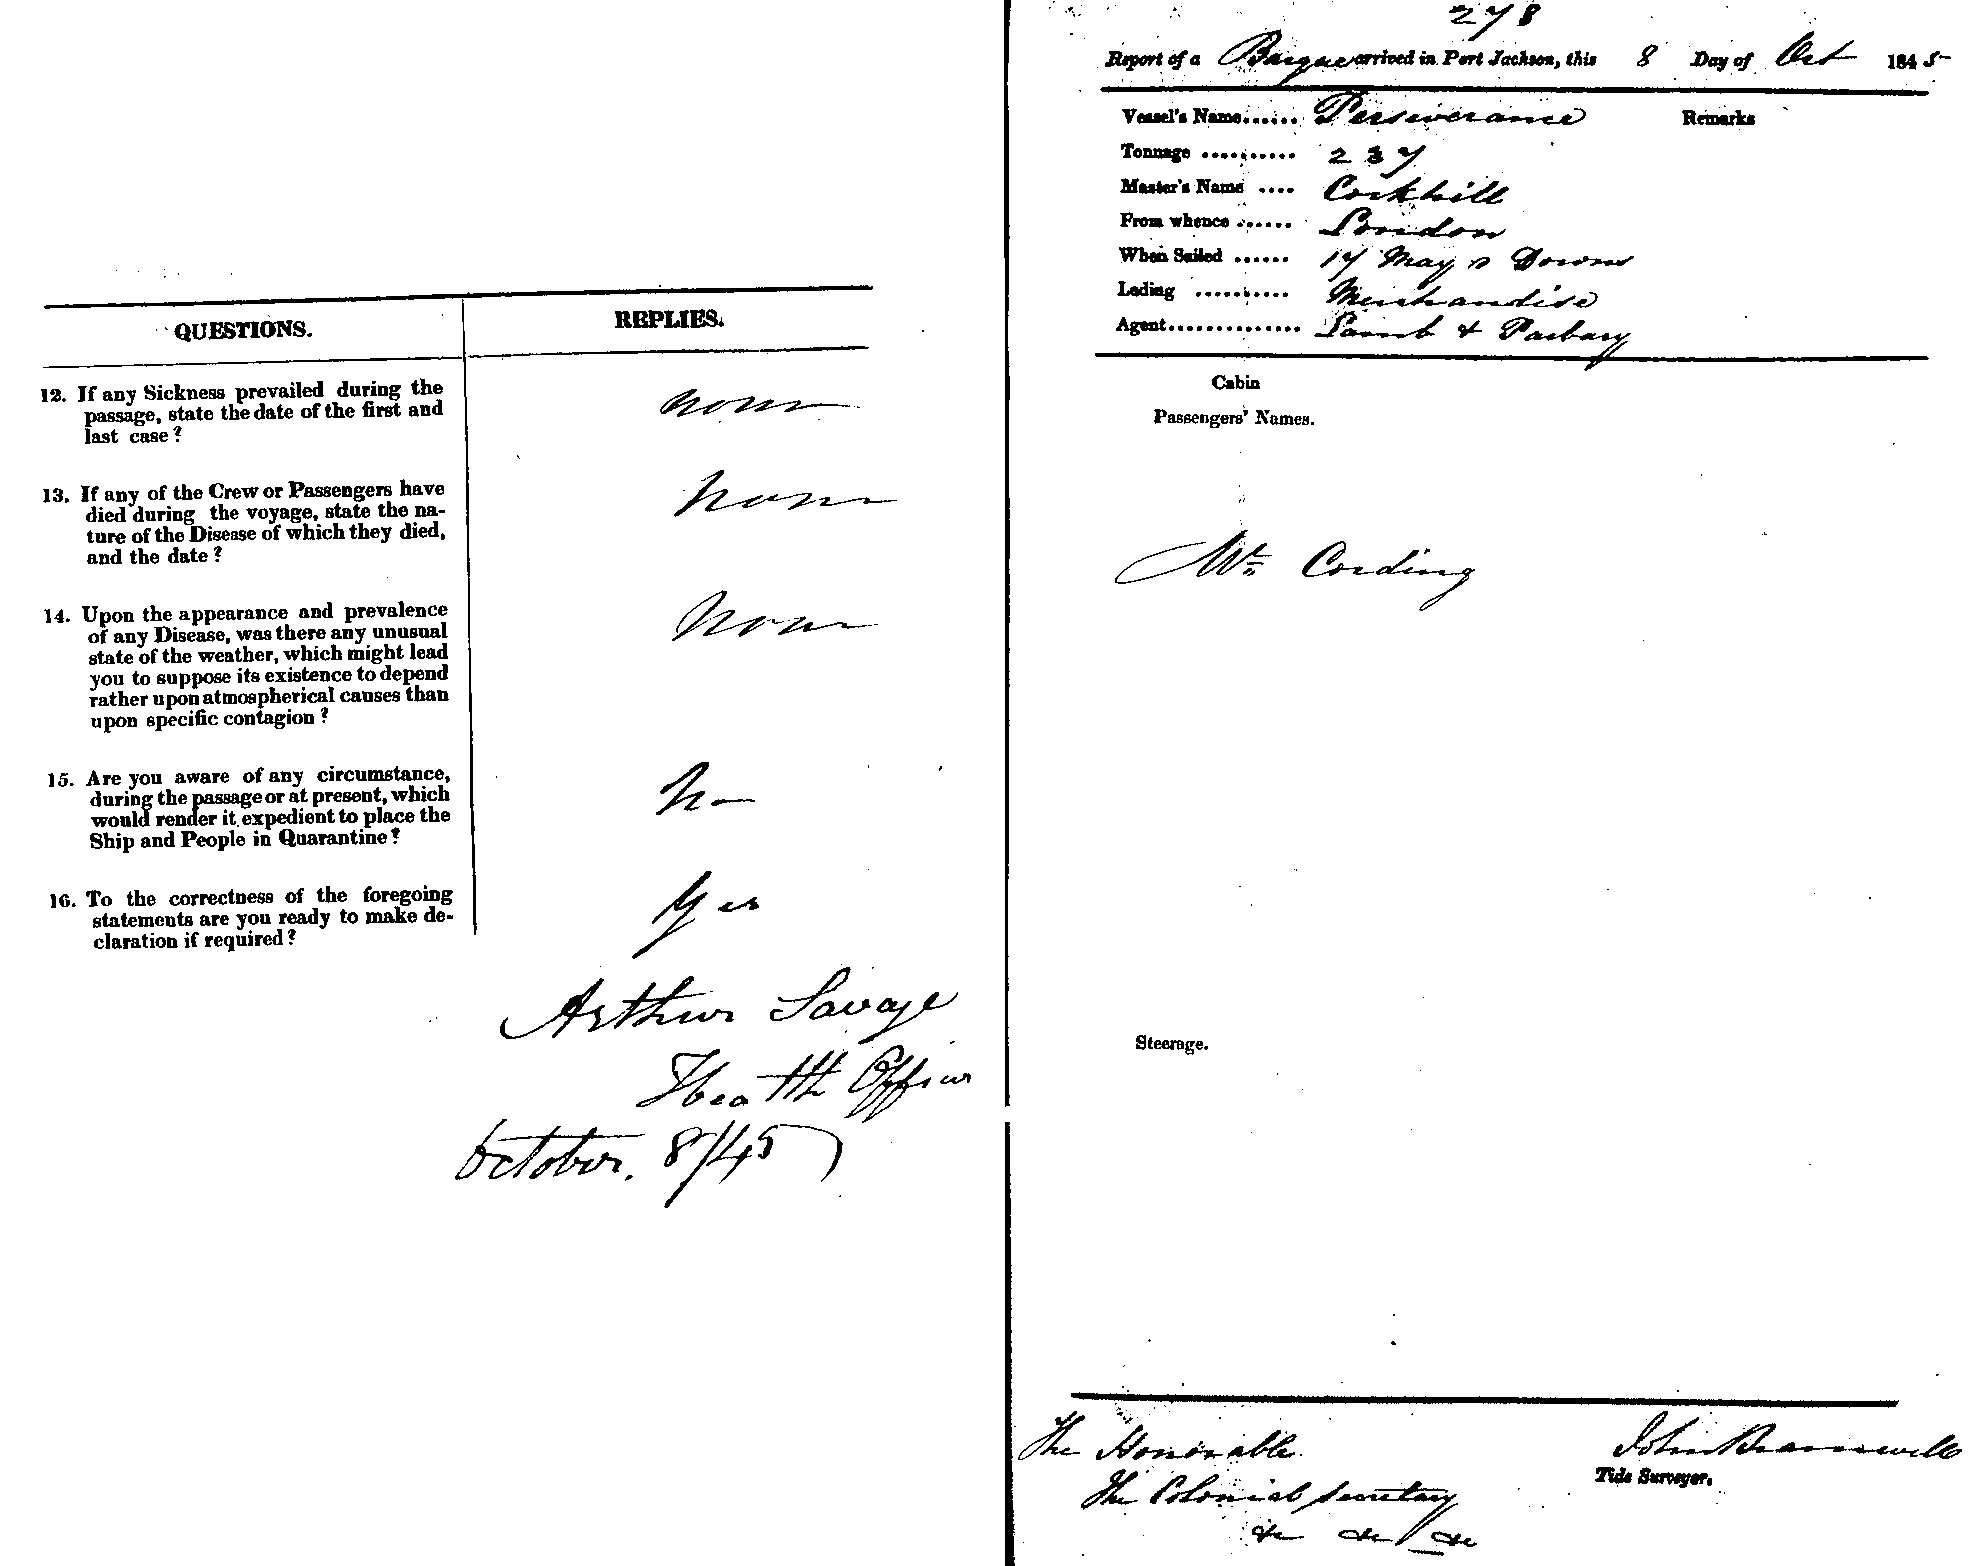 QUESTIONS.
REPLIES.
12. If any Sickness prevailed during the
passage, state the date of the first and
last case?
none
13. If any of the Crew or Passengers have
died during the voyage, state the na-
ture of the Disease of which they died,
and the date?
none
14. Upon the appearance and prevalence
of any Disease, was there any unusual
state of the weather, which might lead
you to suppose its existence to depend
rather upon atmospherical causes than
upon specific contagion?
none
15. Are you aware of any circumstance,
during the passage or at present, which
would render it expedient to place the
Ship and People in Quarantine?
No
16. To the correctness of the foregoing
statements are you ready to make de-
claration if required?
Yes
Arthur Savage
Health Officer
October. 8/45
278
Report of a Barque arrived in Port Jackson, this 8 Day of Oct 1845
Vessel's Name...... Perseverance
Remarks
Tonnage .......... 237
Master's Name .... Corkhill
From whence ...... London
When Sailed ...... 17 May Downs
Lading .......... Merchandise
Agent.............. Lamb & Parbury
Cabin
Passengers' Names.
Mr Cording
Steerage.
The Honorable
The Colonial Secretary
&c &c &c
John Bramwell
Tide Surveyor.